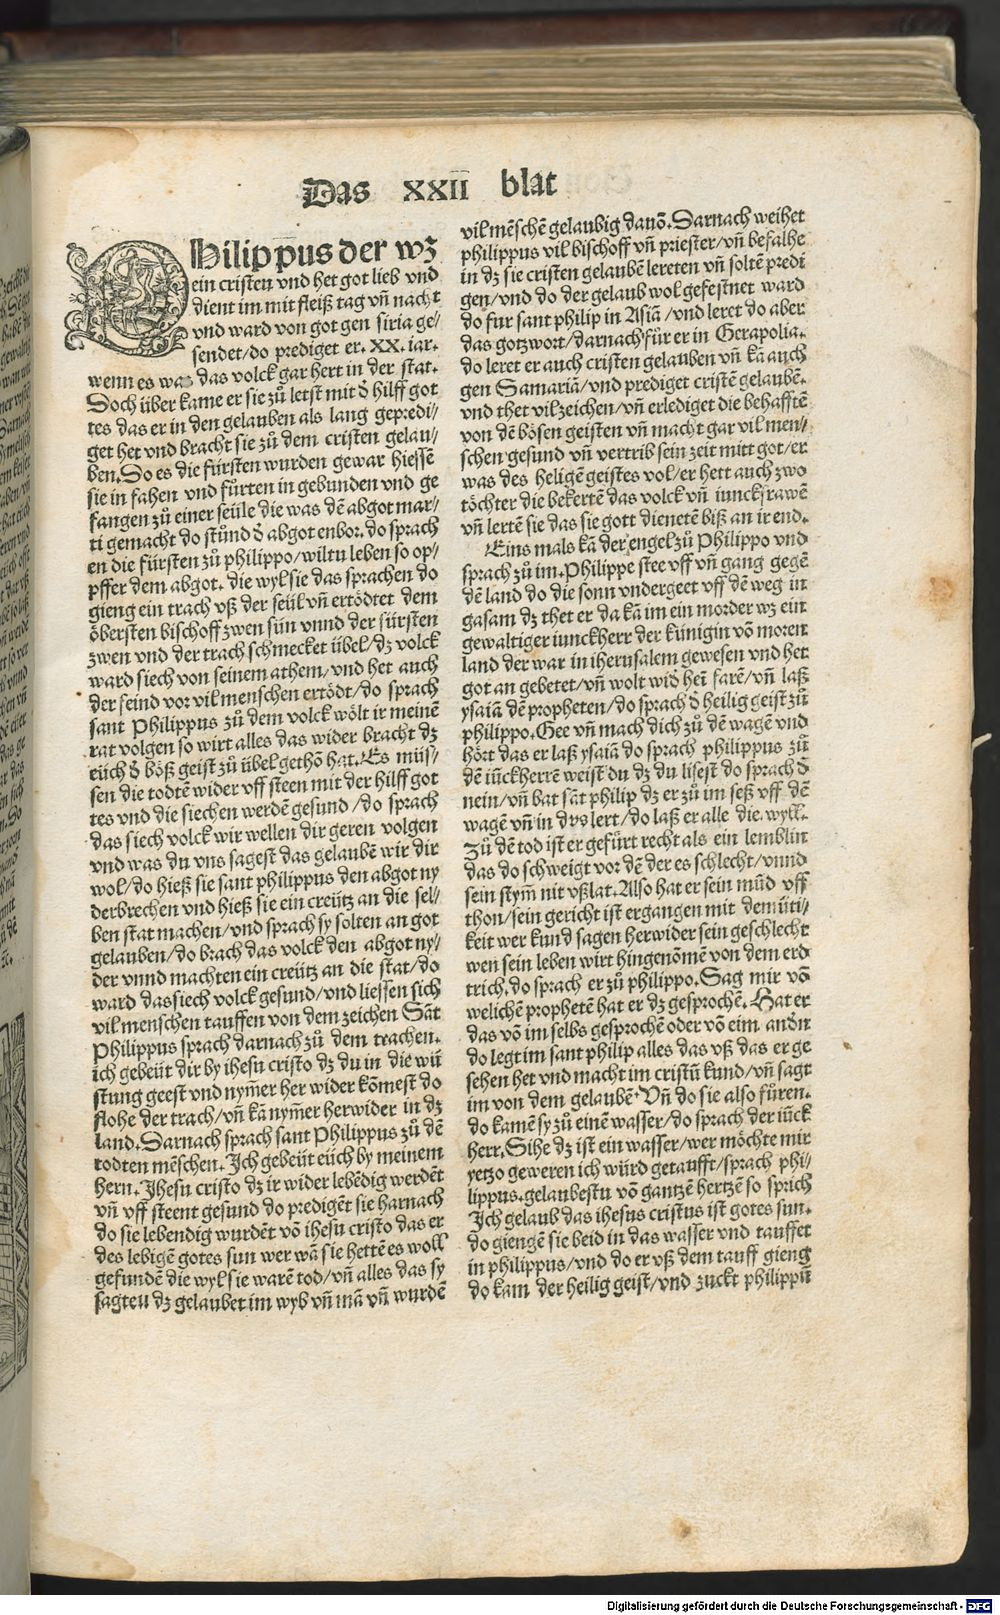 Das XXII blat
Philippus der wz
ein cristen vnd het got lieb vnd
dient im mit fleiß tag vñ nacht
vnd ward von got gen siria ge⸗
sendet/do prediget er. XX. iar.
wenn es was das volck gar hert in der stat.
Doch über kame er sie zů letst mit d̕ hilff got
tes das er in den gelauben als lang gepredi⸗
get het vnd bracht sie zů dem cristen gelau⸗
ben. So es die fürsten wurden gewar hiessẽ
sie in fahen vnd fůrten in gebunden vnd ge
fangen zů einer seüle die was dẽ abgot mar⸗
ti gemacht do stůnd d̕ abgot enbor. do sprach
en die fürsten zů philippo/wiltu leben so op⸗
pffer dem abgot. die wyl sie das sprachen do
gieng ein trach vß der seül vñ ertödtet dem
öbersten bischoff zwen sün vnnd der fürsten
zwen vnd der trach schmecket übel/dz volck
ward siech von seinem athem/vnd het auch
der feind vor vil menschen ertödt/do sprach
sant Philippus zů dem volck wölt ir meinẽ
rat volgen so wirt alles das wider bracht dz
eüch d̕ böß geist zů übel gethõ hat. Es müs⸗
sen die todtẽ wider vff steen mit der hilff got
tes vnd die siechen werdẽ gesund/do sprach
das siech volck wir wellen dir geren volgen
vnd was du vns sagest das gelaubẽ wir dir
wol/do hieß sie sant philippus den abgot ny
derbrechen vnd hieß sie ein creütz an die sel⸗
ben stat machen/vnd sprach sy solten an got
gelauben/do brach das volck den abgot ny⸗
der vnnd machten ein creütz an die stat/do
ward das siech volck gesund/vnd liessen sich
vil menschen tauffen von dem zeichen Sãt
Philippus sprach darnach zů dem trachen.
ich gebeüt dir by ihesu cristo dz du in die wü
stung geest vnd nym̃er her wider kõmest do
flohe der trach/vñ kã nym̃er herwider in dz
land. Darnach sprach sant Philippus zů dẽ
todten mẽschen. Ich gebeüt eüch by meinem
hern. Jhesu cristo dz ir wider lebẽdig werdẽt
vñ vff steent gesund do predigẽt sie harnach
do sie lebendig wurdẽt võ ihesu cristo das er
des lebigẽ gotes sun wer wã sie hettẽ es woll
gefundẽ die wyl sie warẽ tod/vñ alles das sy
sagten dz gelaubet im wyb vñ mã vñ wurdẽ
vil mẽschẽ gelaubig dauõ. Darnach weihet
philippus vil bischoff vñ priester/vñ befalhe
in dz sie cristen gelaubẽ lereten vñ soltẽ predi
gen/vnd do der gelaub wol gefestnet ward
do fur sant philip in Asiã/vnd leret do aber
das gotzwort/darnach für er in Gerapolia.
do leret er auch cristen gelauben vñ kã auch
gen Samariã/vnd prediget cristẽ gelaubẽ.
vnd thet vil zeichen/vñ erlediget die behafftẽ
von dẽ bösen geisten vñ macht gar vil men⸗
schen gesund vñ vertrib sein zeit mitt got/er
was des heligẽ geistes vol/er hett auch zwo
töchter die bekertẽ das volck vñ iunckfrawẽ
vñ lertẽ sie das sie gott dienetẽ biß an ir end.
Eins mals kã der engel zů Philippo vnd
sprach zů im. Philippe stee vff vñ gang gegẽ
dẽ land do die sonn vndergeet vff dẽ weg in
gasam dz thet er da kã im ein morder wz ein
gewaltiger iunckherr der künigin võ moren
land der war in iherusalem gewesen vnd het
got an gebetet/vñ wolt wid̕ heĩ farẽ/vñ laß
ysaiã dẽ propheten/do sprach d̕ heilig geist zů
philippo. Gee vñ mach dich zů dẽ wagẽ vnd
hört das er laß ysaiã do sprach philippus zů
dẽ iũckherrẽ weist du dz du lisest do sprach d̕
nein/vñ bat sãt philip dz er zů im seß vff dẽ
wagẽ vñ in dvs lert/do laß er alle die wyll.
Zů dẽ tod ist er gefürt recht als ein lemblin
das do schweigt vor dẽ der es schlecht/vnnd
sein stym̃ nit vßlat. Also hat er sein mũd vff
thon/sein gericht ist ergangen mit demüti⸗
keit wer kund sagen herwider sein geschlecht
wen sein leben wirt hingenõmẽ von dem erd
trich. do sprach er zů philippo. Sag mir võ
welichẽ prophetẽ hat er dz gesprochẽ. Hat er
das võ im selbs gesprochẽ oder võ eim andn̕
do legt im sant philip alles das vß das er ge
sehen het vnd macht im cristũ kund/vñ sagt
im von dem gelaubẽ. Vñ do sie also fůren.
do kamẽ sy zů einẽ wasser/do sprach der iũck
herr. Sihe dz ist ein wasser/wer möchte mir
yetzo geweren ich würd getaufft/sprach phi⸗
lippus. gelaubestu võ gantzẽ hertzẽ so sprich
Ich gelaub das ihesus cristus ist gotes sun.
do giengẽ sie beid in das wasser vnd tauffet
in philippus/vnd do er vß dem tauff gieng
do kam der heilig geist/vnd zuckt philippũ
Digitalisierung gefördert durch die Deutsche Forschungsgemeinschaft - DFG